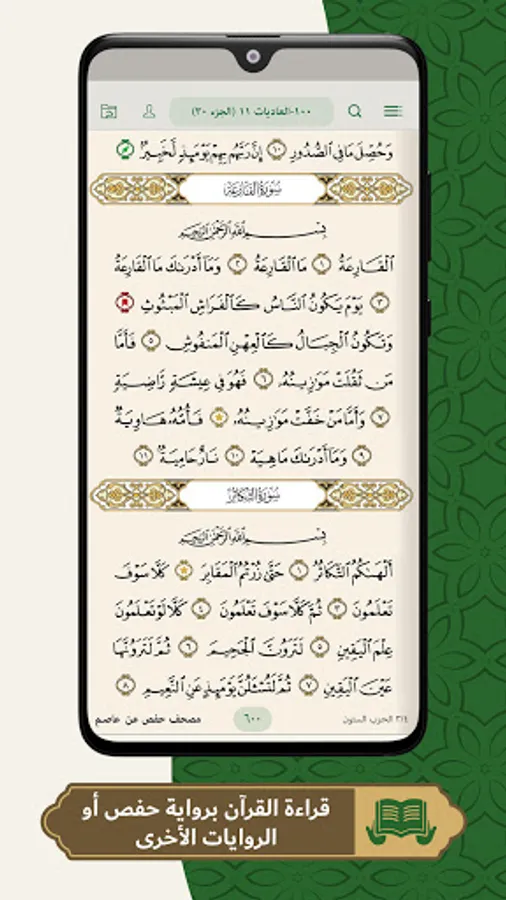 ١٠٠-العاديات ١١ (الجزء ٣٠)
وَحُصِّلَ مَا فِي ٱلصُّدُورِ ١٠ إِنَّ رَبَّهُم بِهِمۡ يَوۡمَئِذٖ لَّخَبِيرُۢ
سُورَةُ القَارِعَةِ
بِسۡمِ ٱللَّهِ ٱلرَّحۡمَٰنِ ٱلرَّحِيمِ
ٱلۡقَارِعَةُ ١ مَا ٱلۡقَارِعَةُ ٢ وَمَآ أَدۡرَىٰكَ مَا ٱلۡقَارِعَةُ
٣ يَوۡمَ يَكُونُ ٱلنَّاسُ كَٱلۡفَرَاشِ ٱلۡمَبۡثُوثِ
وَتَكُونُ ٱلۡجِبَالُ كَٱلۡعِهۡنِ ٱلۡمَنفُوشِ ٥ فَأَمَّا
مَن ثَقُلَتۡ مَوَٰزِينُهُۥ ٦ فَهُوَ فِي عِيشَةٖ رَّاضِيَةٖ
٧ وَأَمَّا مَنۡ خَفَّتۡ مَوَٰزِينُهُۥ فَأُمُّهُۥ هَاوِيَةٞ
٩ وَمَآ أَدۡرَىٰكَ مَا هِيَهۡ ١٠ نَارٌ حَامِيَةُۢ ١١
سُورَةُ التَّكَاثُرِ
بِسۡمِ ٱللَّهِ ٱلرَّحۡمَٰنِ ٱلرَّحِيمِ
أَلۡهَىٰكُمُ ٱلتَّكَاثُرُ ١ حَتَّىٰ زُرۡتُمُ ٱلۡمَقَابِرَ كَلَّا سَوۡفَ
تَعۡلَمُونَ ٣ ثُمَّ كَلَّا سَوۡفَ تَعۡلَمُونَ ٤ كَلَّا لَوۡ تَعۡلَمُونَ
عِلۡمَ ٱلۡيَقِينِ ٥ لَتَرَوُنَّ ٱلۡجَحِيمَ ٦ ثُمَّ لَتَرَوُنَّهَا
عَيۡنَ ٱلۡيَقِينِ ٧ ثُمَّ لَتُسۡـَٔلُنَّ يَوۡمَئِذٍ عَنِ ٱلنَّعِيمِ ٨
٣/٤ الحزب الستون ٦٠٠ مصحف حفص عن عاصم
قراءة القرآن برواية حفص أو
الروايات الأخرى